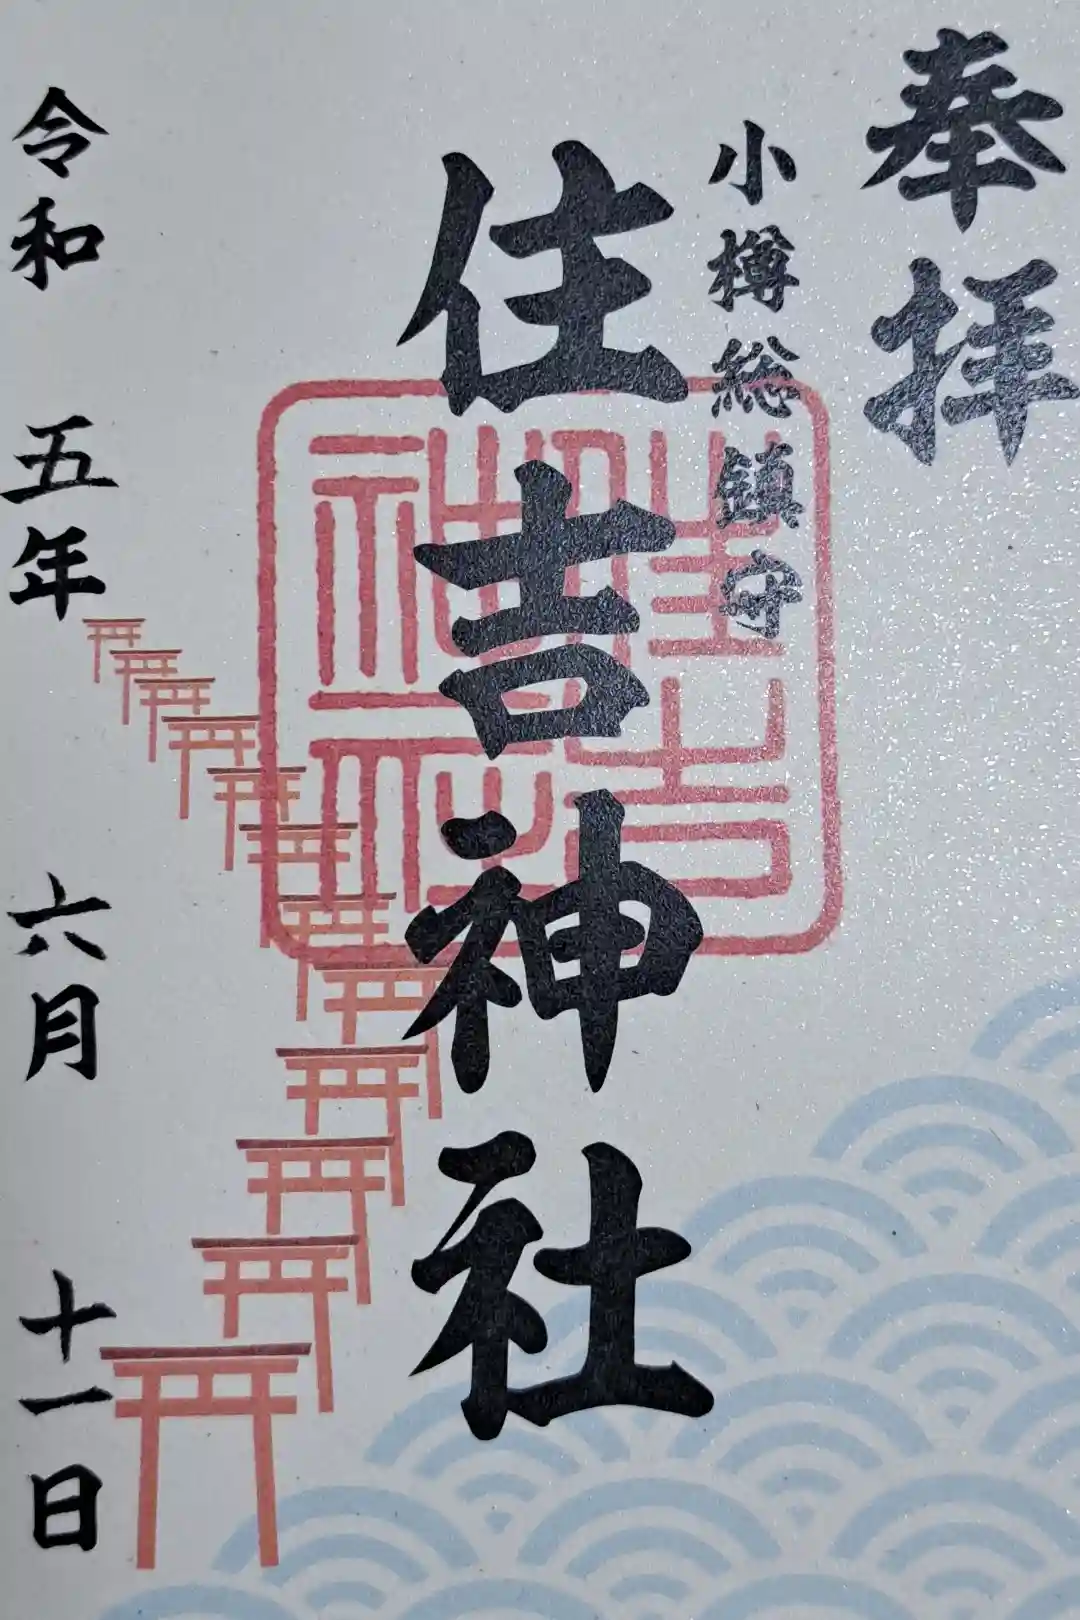 奉拝
小樽総鎮守
住吉神社
住吉神社
令和五年六月十一日